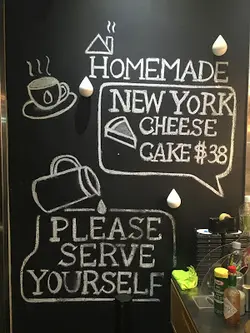 HOMEMADE
NEW YORK
CHEESE
CAKE $38
PLEASE
SERVE
YOURSELF